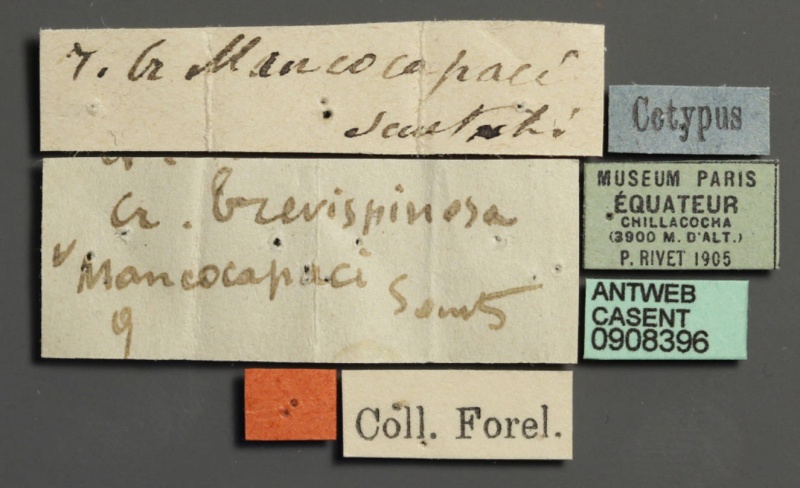 r. Cr Mancocapaci
Santschi
Cotypus
Cr. brevispinosa
v Mancocapaci
Sants
MUSEUM PARIS
ÉQUATEUR
CHILLACOCHA
(3900 M. D'ALT.)
P. RIVET 1905
ANTWEB
CASENT
0908396
Coll. Forel.